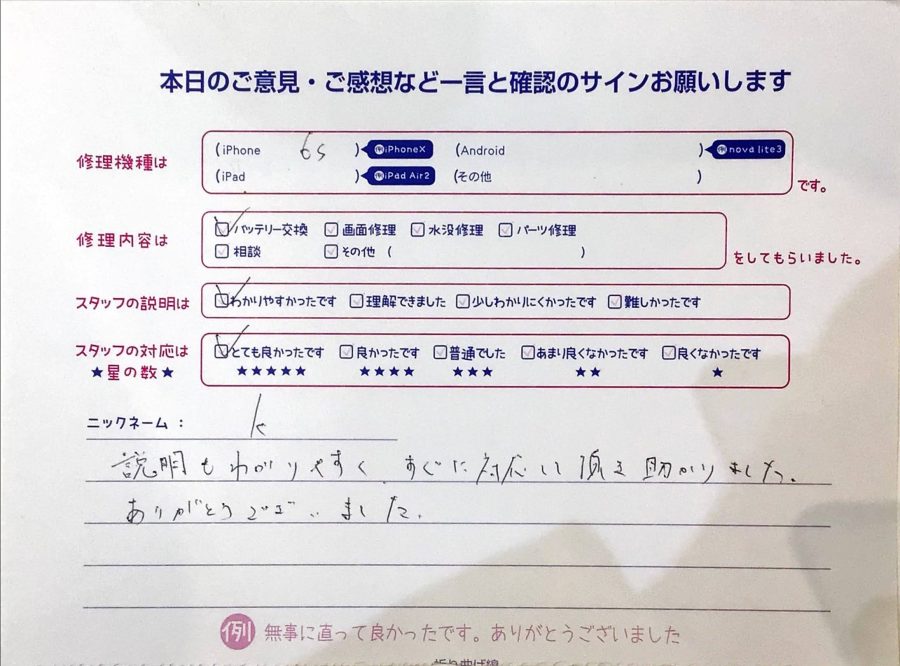 本日のご意見・ご感想など一言と確認のサインお願いします
修理機種は
(iPhone 6s ) iPhoneX (Android ) nova lite3
(iPad ) iPad Air2 (その他 )
です。
修理内容は
バッテリー交換 画面修理 水没修理 パーツ修理
相談 その他 ( )
をしてもらいました。
スタッフの説明は
わかりやすかったです 理解できました 少しわかりにくかったです 難しかったです
スタッフの対応は
★星の数★
とても良かったです 良かったです 普通でした あまり良くなかったです 良くなかったです
★★★★★ ★★★★ ★★★ ★★ ★
ニックネーム： k
説明もわかりやすく、すぐに対応して頂き助かりました。
ありがとうございました。
例 無事に直って良かったです。ありがとうございました
折り曲げ線